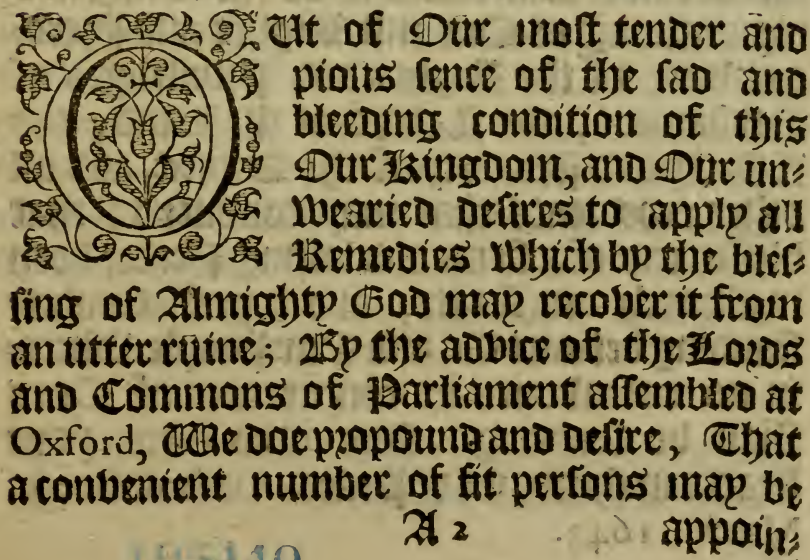 OUt of Our most tender and
pious sence of the sad and
bleeding condition of this
Our Kingdom, and Our un⸗
wearied desires to apply all
Remedies which by the bles⸗
sing of Almighty God may recover it from
an utter ruine; By the advice of the Lords
and Commons of Parliament assembled at
Oxford, We doe propound and desire, That
a convenient number of fit persons may be
A 2 appoin⸗